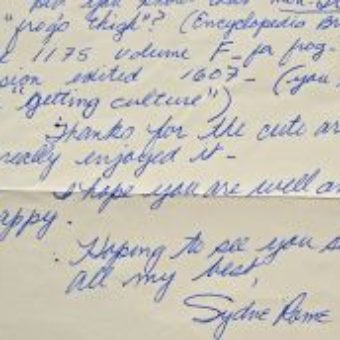 Did you know that
"frog's thigh"? (Encyclopedia Br
1175 volume F_ for frog-
sion edited 1607_ (you
"getting culture")
Thanks for the cute ar
really enjoyed it_
I hope you are well an
appy.
Hoping to see you s
all my best,
Sydne Rome